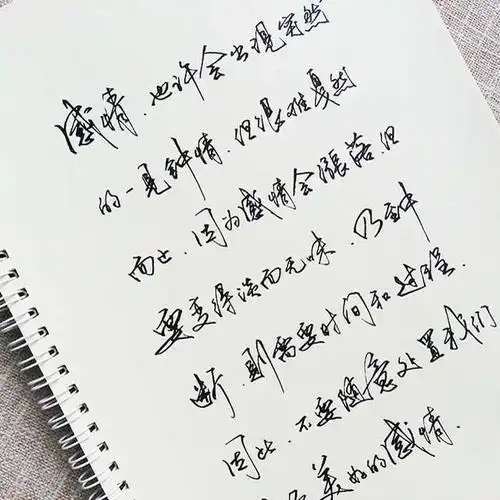 感情,也许会出现突然
的一见钟情,但很难戛然
而止,因为感情会涨落,但
要变得淡而无味,乃至中
断,则需要时间和过程.
因此,不要随意处置我们
美好的感情.